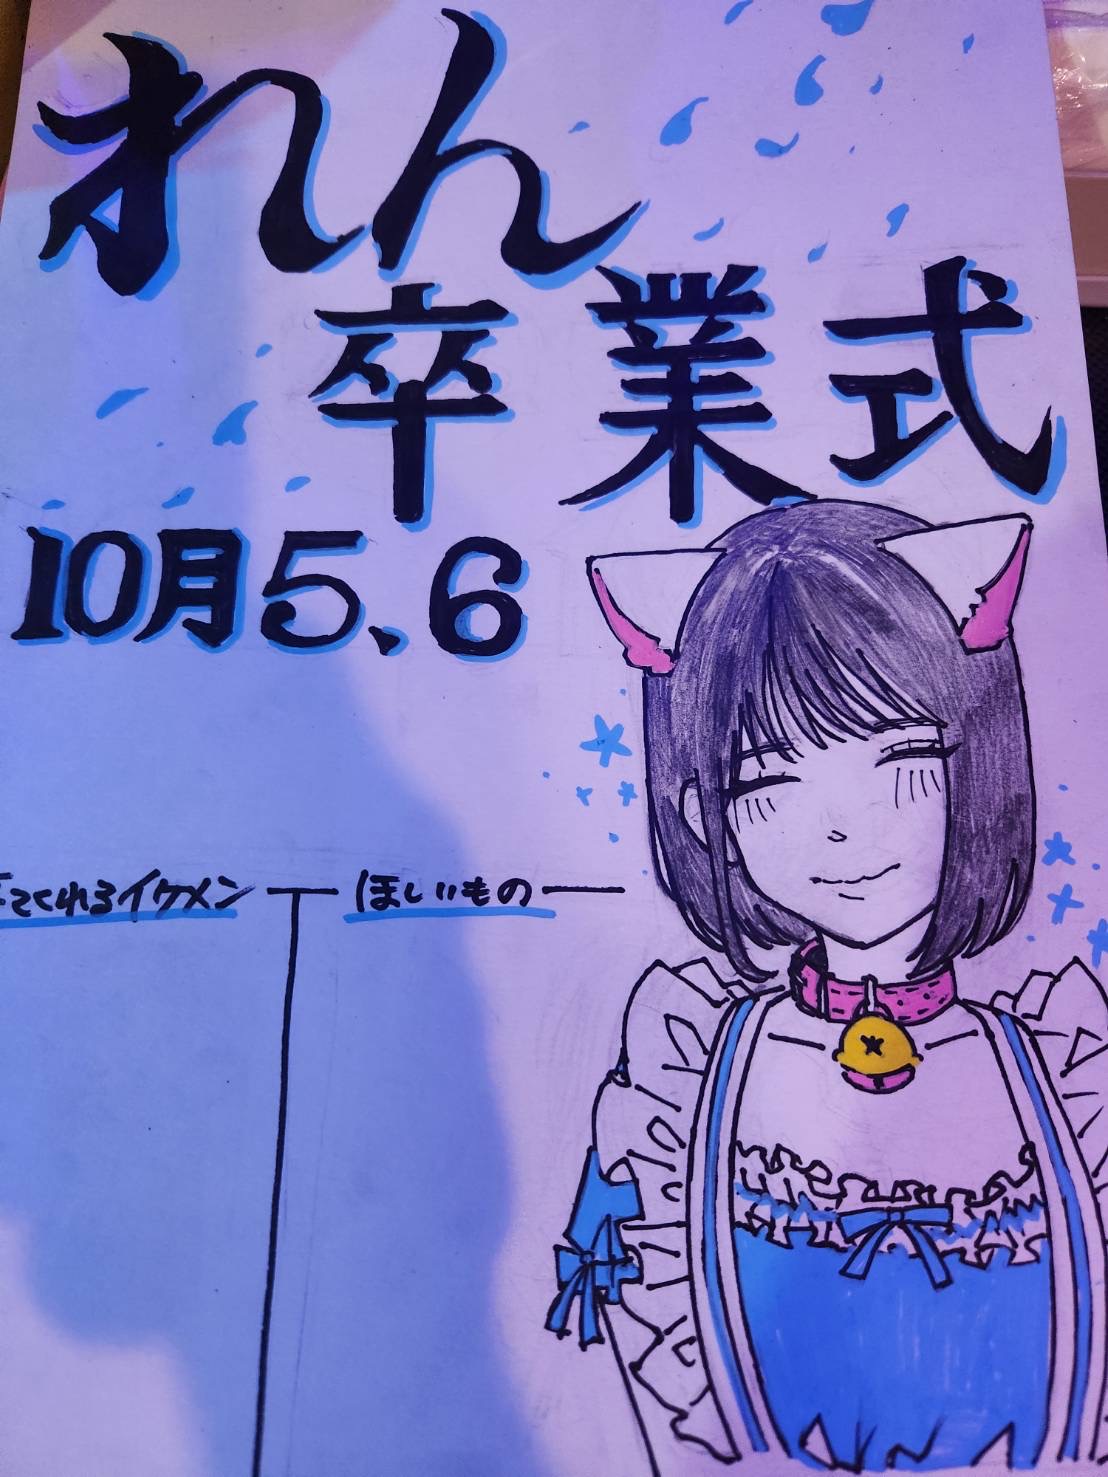 れん
卒業式
10月5、6
てくれるイケメン
ほしいもの